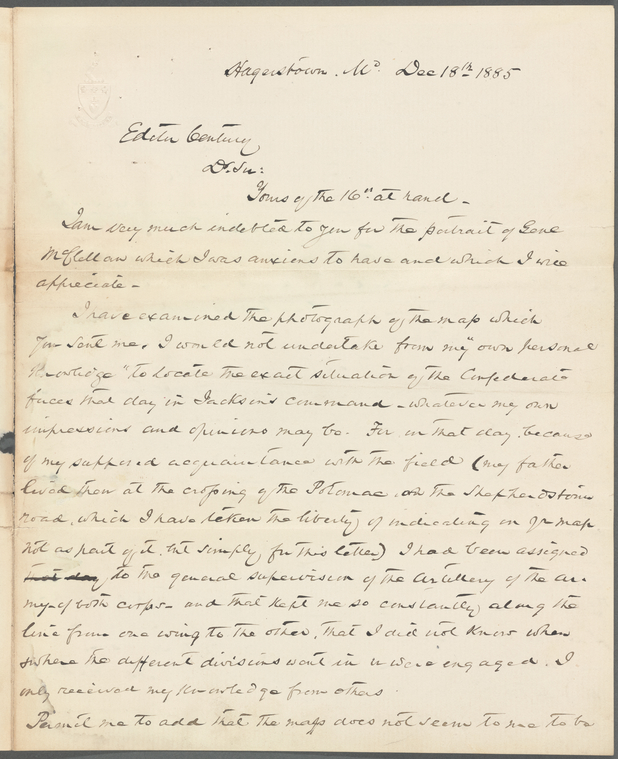 Hagerstown. Md Dec 18th 1885
Editor Century
Dr. Sir:
Yours of the 16th at hand -
I am very much indebted to you for the portrait of Genl
McClellan which I was anxious to have and which I will
appreciate -
I have examined the photograph of the map which
you sent me. I would not undertake from my "own personal
knowledge" to locate the exact situation of the Confederate
forces that day in Jackson's command - whatever my own
impressions and opinions may be. For on that day, because
of my supposed acquaintance with the field (my father
lived then at the crossing of the Potomac, on the Shepherdstown
road, which I have taken the liberty of indicating on yr map
not as part of it, but simply for this letter) I had been assigned
that day to the general supervision of the artillery of the ar-
my - of both corps - and that kept me so constantly along the
line from one wing to the other, that I did not know when
or where the different divisions went in or were engaged. I
only received my knowledge from others.
Permit me to add that the map does not seem to me to be